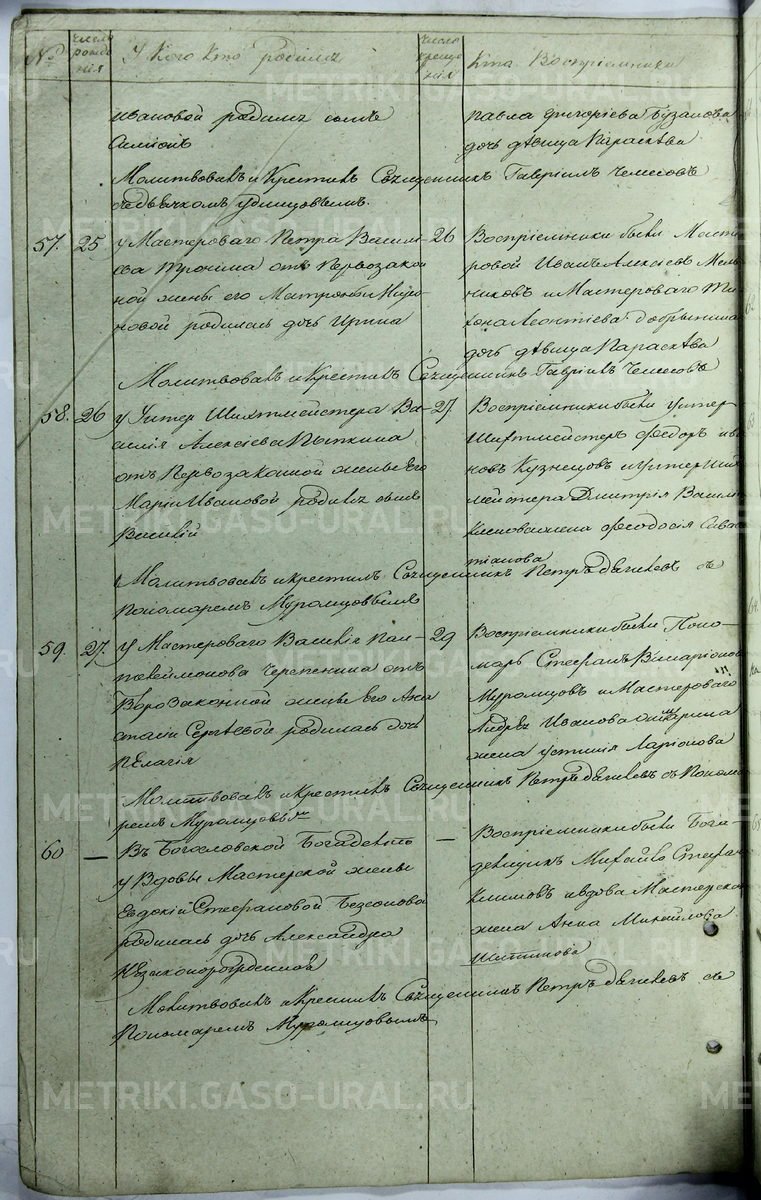 № число рожденія У Кого Кто родился число крещенія Кто Воспріемники
Ивановой родился сынъ
Симіонъ
Павла Григоріева Бузанова
дочь дѣвица Параскѣва
Молитвовалъ и Крестилъ Священникъ Гавріилъ Чемесовъ
57. 25 у Мастероваго Петра Василь-
ева от Первозакон
ной жены его Матроны Миро-
новой родилась дочь Ирина
26 Воспріемники были Масте
ровой Иванъ Алексѣевъ Мель
никовъ и Мастероваго Ти
хона Леонтіева Добрынина
дочь дѣвица Параскѣва
Молитвовалъ и Крестилъ Священникъ Гавріилъ Чемесовъ
58. 26 у Унтер Шихтмейстера Ва-
силія Алексіева Пыткина
отъ Первозаконной жены Его
Маріи Ивановой родился сынъ
Василій
27 Воспріемники были унтер
Шихтмейстеръ Феодоръ Ива
новъ Кузнецовъ и унтер Ших
мейстера Дмитрія Васил
жена Феодосія Савас
тіанова
Молитвовалъ и крестилъ Священникъ Петръ съ
Пономаремъ Муромцовымъ
59. 27. У Мастероваго Василія Пан-
телеймонова Черепенина отъ
Второзаконной жены Его Ана
стасіи Сергѣевой родилась дочь
Пелагія
29 Воспріемники были Поно-
марь Стефанъ Иларіонов
Муромцовъ и Мастероваго
Андрея Иванова
жена Устинія Ларіонова
Молитвовалъ и Крестилъ Священникъ Петръ съ Понома
ремъ Муромцовым
60 — Въ Богословской Богадельнѣ
у Вдовы Мастерской жены
Евдокіи Стефановой Безсонова
родилась дочь Александра
Незаконорожденная
— Воспріемники были Бога-
дельщикъ Михайло Стефан
Климовъ и вдова Мастерска
жена Анна Михайлова
Молитвовалъ и Крестилъ Священникъ Петръ съ
Пономаремъ Муромцовымъ
METRIKI.GASO-URAL.RU